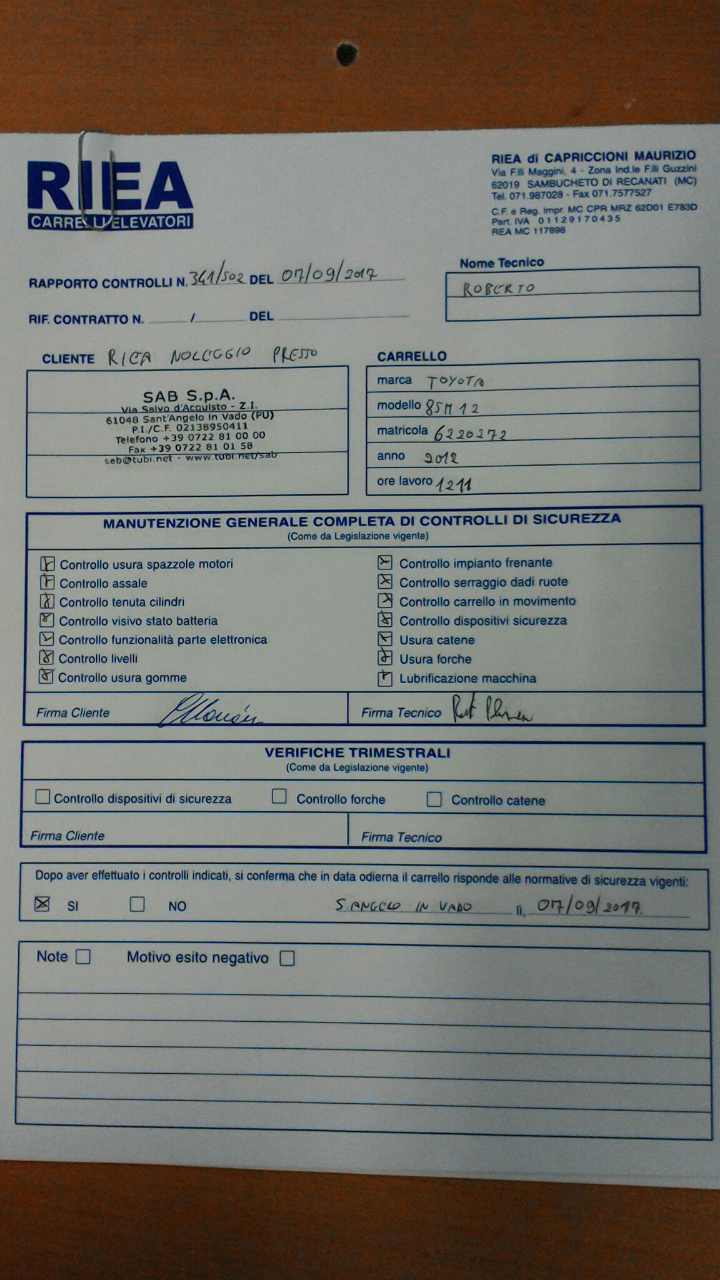 RIEA
CARRELLI ELEVATORI
RIEA di CAPRICCIONI MAURIZIO
Via F.lli Maggini, 4 - Zona Ind.le F.lli Guzzini
62019 SAMBUCHETO DI RECANATI (MC)
Tel. 071.987028 - Fax 071.7577527
C.F. e Reg. Impr. MC CPR MRZ 62D01 E783D
Part. IVA 01129170435
REA MC 117898
RAPPORTO CONTROLLI N. 341/S02 DEL 07/09/2017
RIF. CONTRATTO N. / DEL
Nome Tecnico
ROBERTO
CLIENTE RIEA NOLEGGIO PRESSO
SAB S.p.A.
Via Salvo d'Acquisto - Z.I.
61048 Sant'Angelo in Vado (PU)
P.I./C.F. 02138950411
Telefono +39 0722 81 00 00
Fax +39 0722 81 01 58
sab@tubi.net - www.tubi.net/sab
CARRELLO
marca TOYOTA
modello 8SM12
matricola 6220272
anno 2012
ore lavoro 1211
MANUTENZIONE GENERALE COMPLETA DI CONTROLLI DI SICUREZZA
(Come da Legislazione vigente)
Controllo usura spazzole motori
Controllo assale
Controllo tenuta cilindri
Controllo visivo stato batteria
Controllo funzionalità parte elettronica
Controllo livelli
Controllo usura gomme
Controllo impianto frenante
Controllo serraggio dadi ruote
Controllo carrello in movimento
Controllo dispositivi sicurezza
Usura catene
Usura forche
Lubrificazione macchina
Firma Cliente
Firma Tecnico
VERIFICHE TRIMESTRALI
(Come da Legislazione vigente)
Controllo dispositivi di sicurezza Controllo forche Controllo catene
Firma Cliente
Firma Tecnico
Dopo aver effettuato i controlli indicati, si conferma che in data odierna il carrello risponde alle normative di sicurezza vigenti:
SI NO S. ANGELO IN VADO lì, 07/09/2017
Note Motivo esito negativo